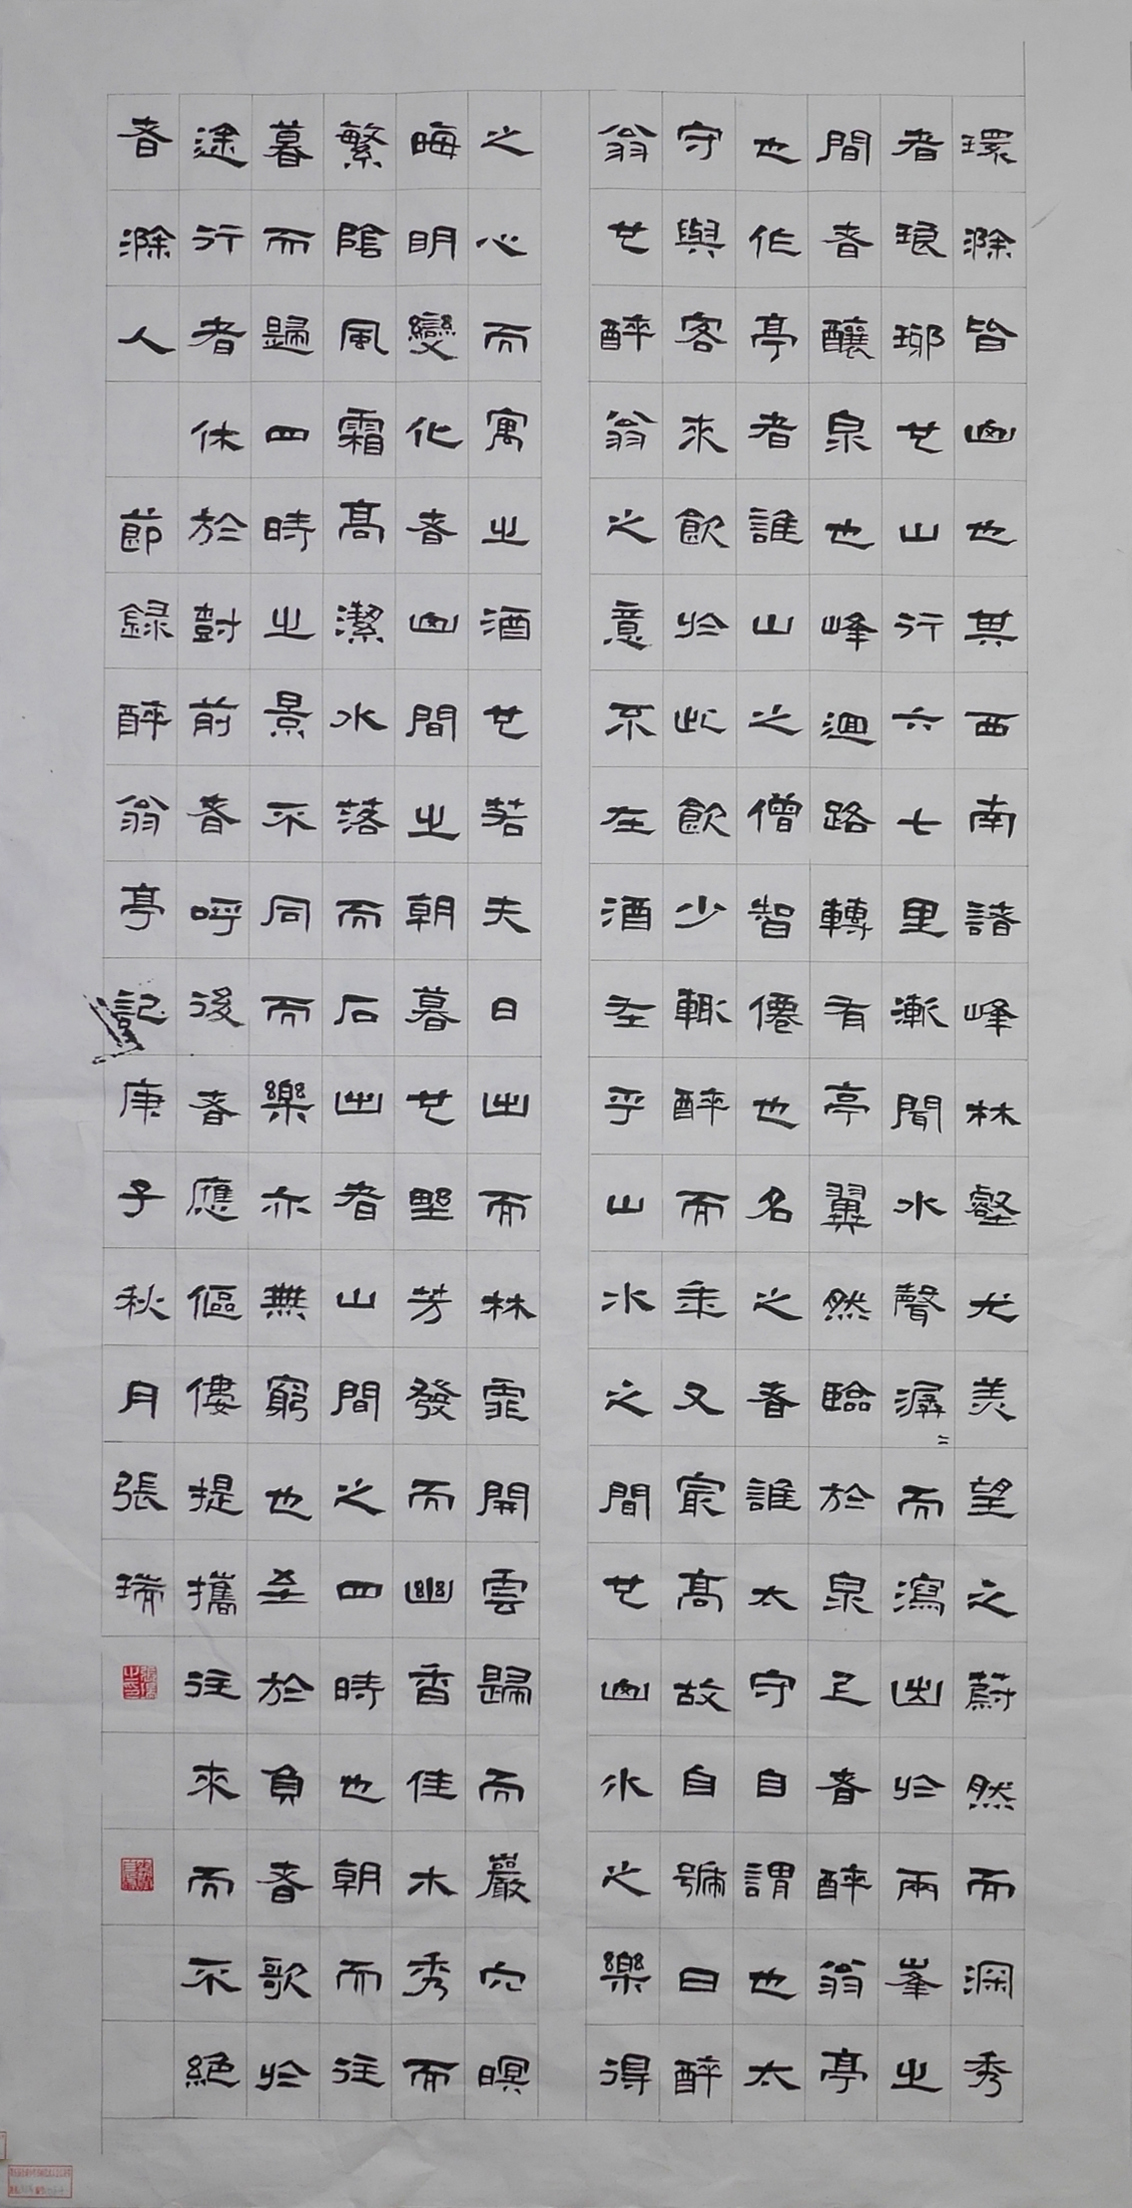 環滁皆山也其西南諸峰林壑尤美望之蔚然而深秀
者琅琊也山行六七里漸聞水聲潺〻而瀉出於兩峯之
間者釀泉也峰迴路轉有亭翼然臨於泉上者醉翁亭
也作亭者誰山之僧智僊也名之者誰太守自謂也太
守與客來飲於此飲少輒醉而年又最高故自號曰醉
翁也醉翁之意不在酒在乎山水之間也山水之樂得
之心而寓之酒也若夫日出而林霏開雲歸而巖穴暝
晦明變化者山間之朝暮也野芳發而幽香佳木秀而
繁陰風霜高潔水落而石出者山間之四時也朝而往
暮而歸四時之景不同而樂亦無窮也至於負者歌於
途行者休於樹前者呼後者應傴僂提攜往來而不絕
者滁人 節錄醉翁亭記庚子秋月張瑞